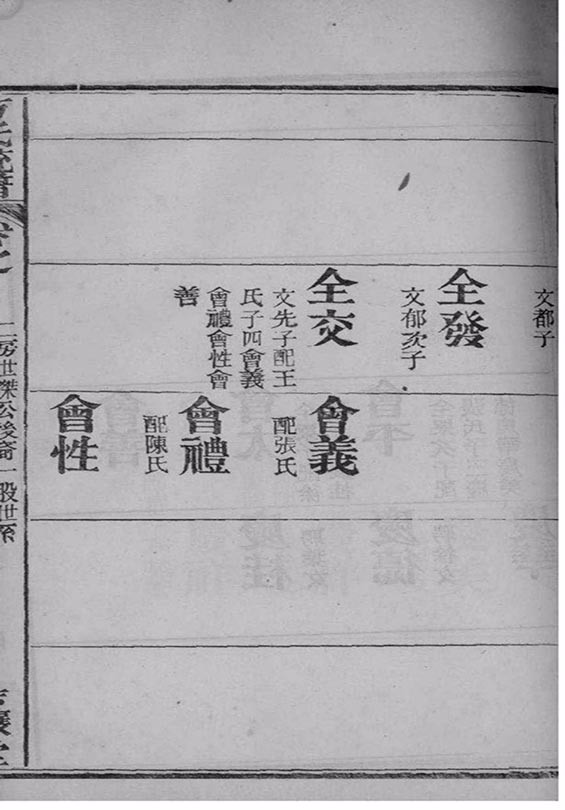 文都子
全發
文郁次子
全交
文先子配王
氏子四會義
會禮會性會
善
會義
配張氏
會禮
配陳氏
會性
二房世傑公後裔一股世系